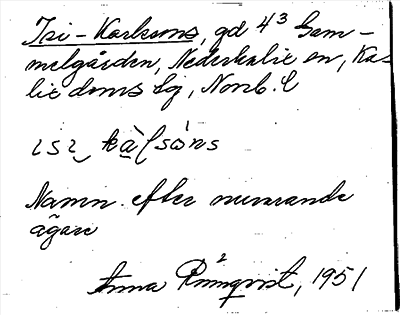 Isi-Karlsons, gd 4³ Gam-
melgården, Nederkalix sn, Ka-
lix doms lg, Norrb. l
ɩsɩ kàlsòns
Namn efter nuvarande
ägare
Anna Rönnqvist, 1951